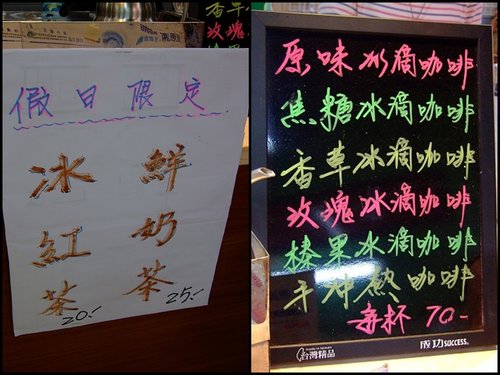 假日限定
鮮奶茶 25.-
冰紅茶 20.-
原味冰滴咖啡
焦糖冰滴咖啡
香草冰滴咖啡
玫瑰冰滴咖啡
榛果冰滴咖啡
手沖熱咖啡
每杯 70.-
台灣精品
成功 SUCCESS.